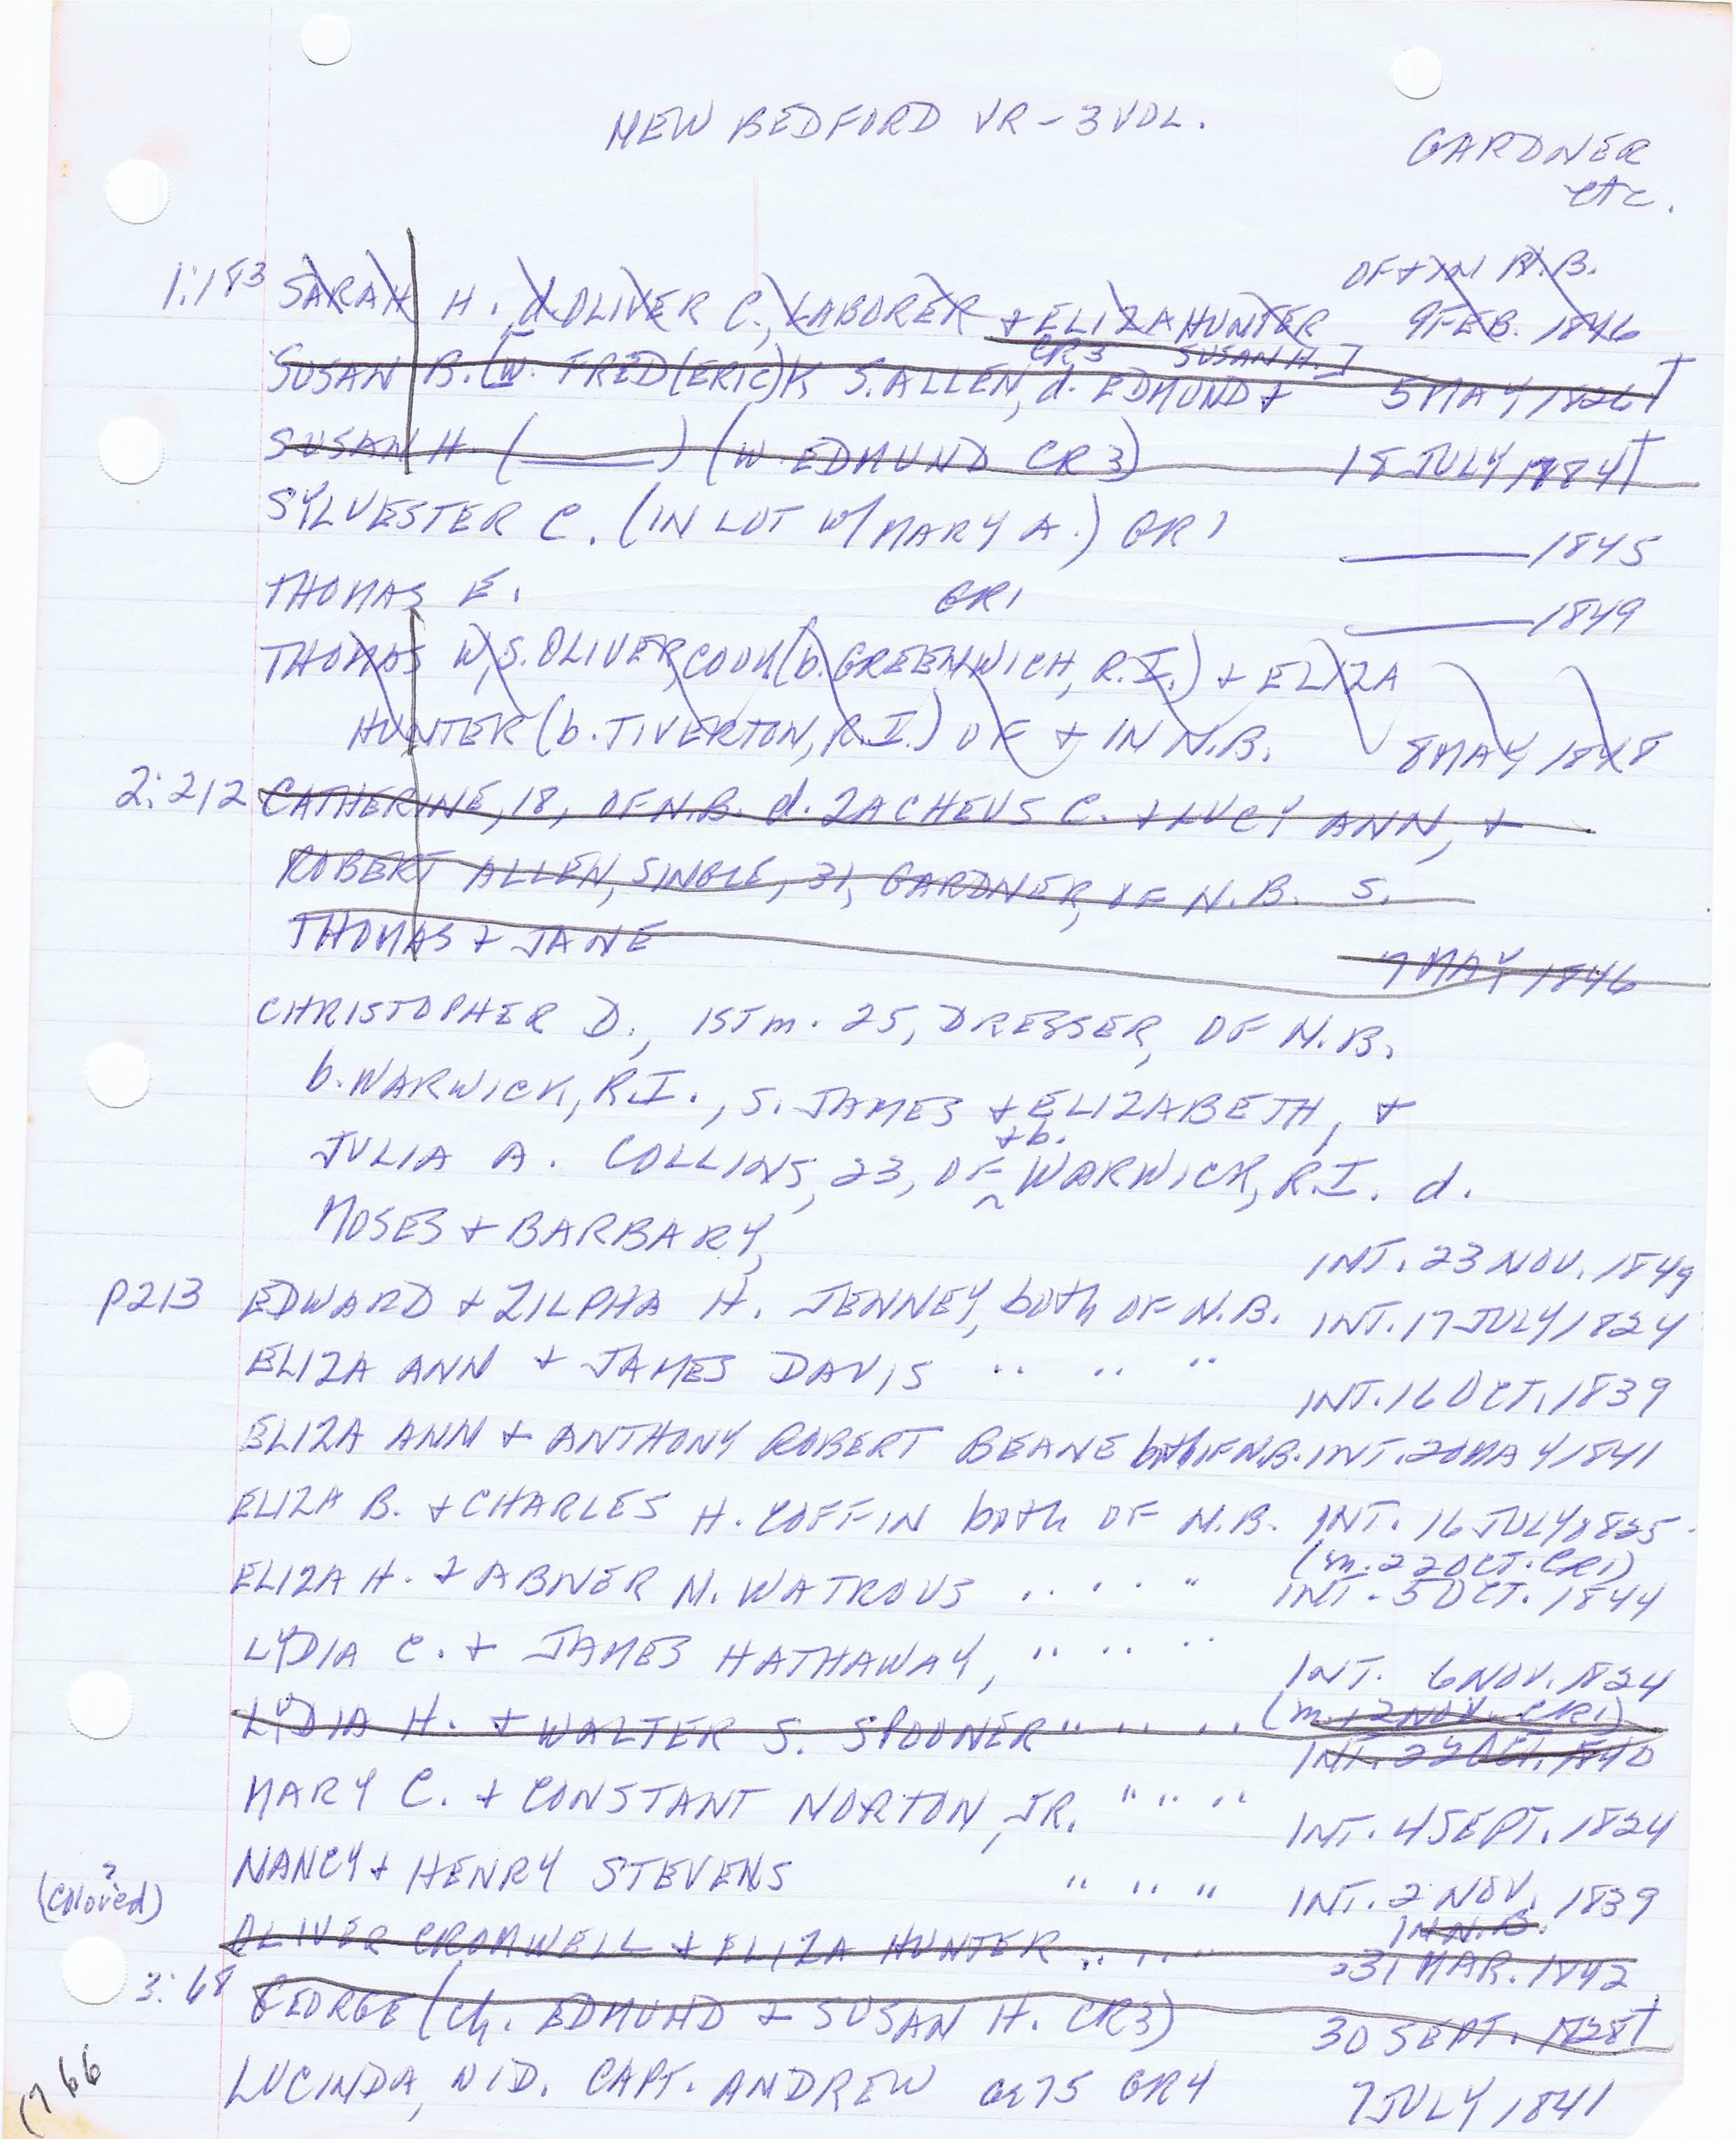 NEW BEDFORD VR - 3 VOL.
GARDNER
etc.
OF + IN N.B.
1:183 SARAH H. d. OLIVER C., LABORER + ELIZA HUNTER 9 FEB. 1846
CR3 SUSAN H.]
SUSAN B. [w. FRED(ERIC)K S. ALLEN, d. EDMUND + 5 MAY 1826†
SUSAN H. (____) (W. EDMUND CR3) 18 JULY 1784†
SYLVESTER C. (IN LOT W/ MARY A.) GR1 ____ 1845
THOMAS E. GR1 ____ 1849
THOMAS W, S. OLIVER COOK (b. GREENWICH, R.I.) + ELIZA
HUNTER (b. TIVERTON, R.I.) OF + IN N.B. 8 MAY, 1848
2:212 CATHERINE, 18, OF N.B. d. ZACHEUS C. + LUCY ANN, +
ROBERT ALLEN, SINGLE, 31, GARDNER, OF N.B. S.
THOMAS + JANE 7 MAY 1846
CHRISTOPHER D., 1ST m. 25, DRESSER, OF N.B.
b. WARWICK, R.I., S. JAMES + ELIZABETH, +
+ b.
JULIA A. COLLINS, 23, OF ^ WARWICK, R.I. d.
MOSES + BARBARY, INT. 23 NOV. 1849
P213 EDWARD + ZILPHA H. JENNEY, both OF N.B. INT. 17 JULY 1824
ELIZA ANN + JAMES DAVIS " " " INT. 16 OCT. 1839
ELIZA ANN + ANTHONY ROBERT BEANE both OF N.B. INT. 20 MAY 1841
ELIZA B. + CHARLES H. COFFIN both OF N.B. INT. 16 JULY 1835
(m. 22 OCT. CR1)
ELIZA H. + ABNER M. WATROUS " " " INT. 5 OCT. 1844
LYDIA C. + JAMES HATHAWAY, " " " INT. 6 NOV. 1824
LYDIA H. + WALTER S. SPOONER " " " (m. 12 NOV. CR1)
INT. 22 OCT. 1840
MARY C. + CONSTANT NORTON, JR. " " " INT. 4 SEPT. 1824
NANCY + HENRY STEVENS " " " INT. 2 NOV. 1839
(colored) ?
IN N.B.
OLIVER CROMWELL + ELIZA HUNTER " " " 31 MAR. 1842
3:68 GEORGE (ch. EDMUND + SUSAN H. CR3) 30 SEPT. 1828†
LUCINDA, WID. CAPT. ANDREW ae 75 GR4 7 JULY 1841
766